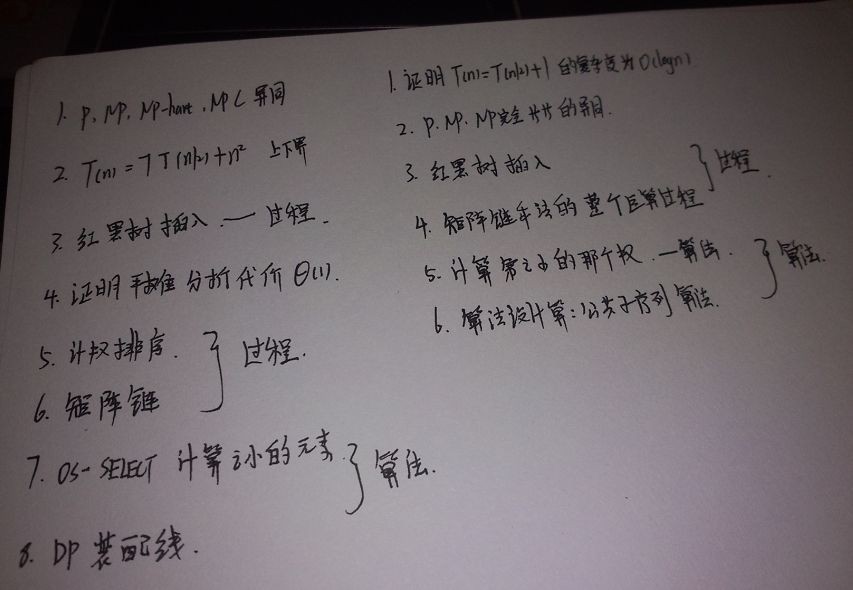 1. P, NP, NP-hard, NPC 异同
2. T(n) = 7T(n/2)+n² 上下界
3. 红黑树插入 — 过程.
4. 证明 分析代价 Θ(1).
5. 计数排序.
6. 矩阵链
} 过程.
7. OS-SELECT 计算 i小的元素
8. DP 装配线.
} 算法.
1. 证明 T(n)=T(n/2)+1 的复杂度为 O(logn)
2. P. NP. NP完全 的异同.
3. 红黑树插入
4. 矩阵链乘法的整个运算过程
} 过程.
5. 计算第i小的那个数. —算法.
6. 算法设计算:公共子序列算法.
} 算法.